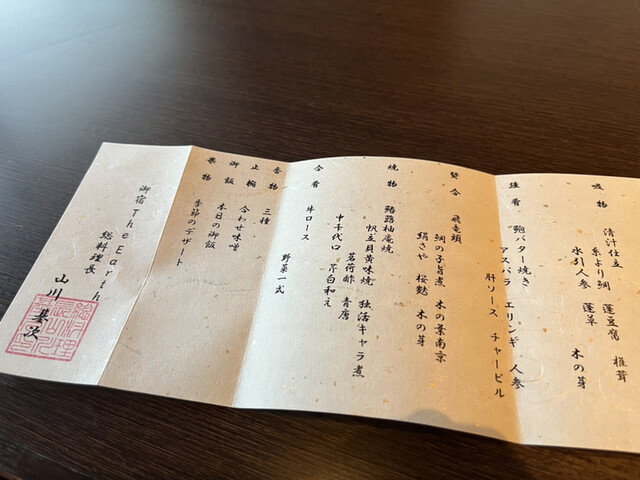 吸物
清汁仕立
糸より鯛 蓬豆腐 椎茸
水引人参 蓬草 木の芽
強肴
鮑バター焼き
アスパラ エリンギ 人参
肝ソース チャービル
焚合
飛竜頭
鯛の子旨煮 木の葉南京
絹さや 桜麩 木の芽
焼物
鰆路柚庵焼
帆立貝黄味焼 独活キャラ煮
茗荷酢 青唐
中千代口 芹白和え
合肴
牛ロース
野菜一式
香物
三種
止椀
合わせ味噌
御飯
本日の御飯
果物
季節のデザート
御宿 The Earth
総料理長
山川 基次